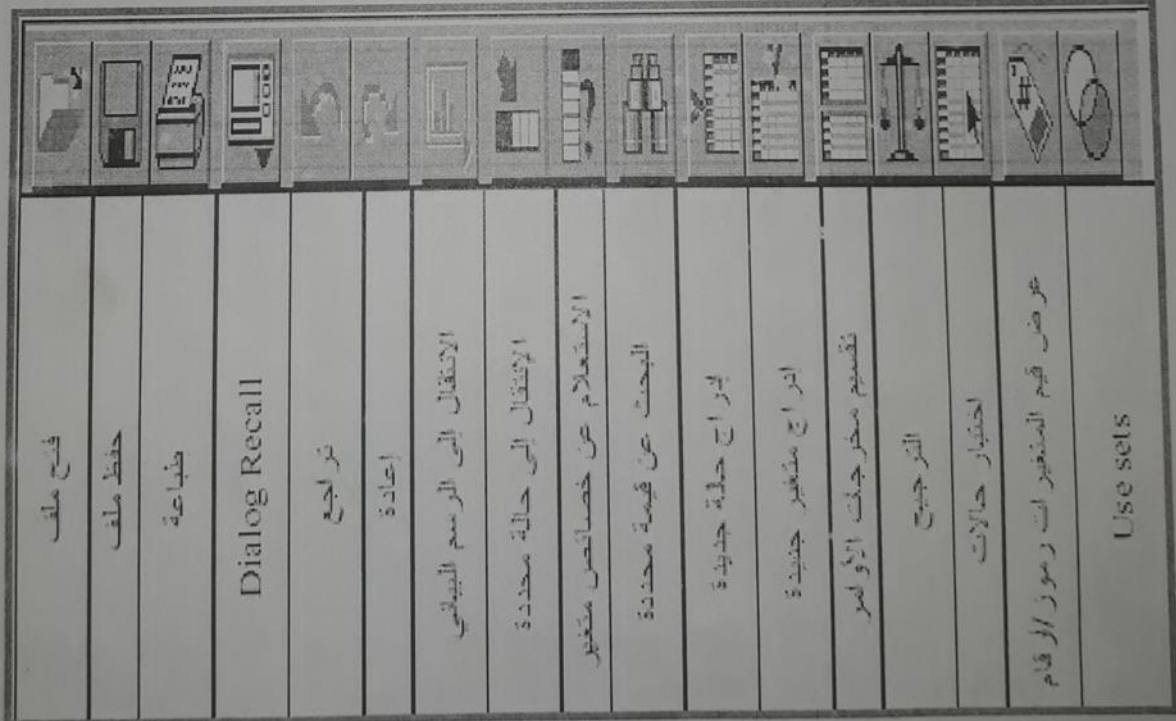 فتح ملف
حفظ ملف
طباعة
Dialog Recall
تراجع
إعادة
الانتقال إلى الرسم البياني
الإنتقال إلى حالة محددة
الاستعلام عن خصائص متغير
البحث عن قيمة محددة
إدراج حالة جديدة
إدراج متغير جديدة
تقسيم مخرجات الأوامر
الترجيح
اختيار حالات
عرض قيم المتغيرات رموز/أرقام
Use sets